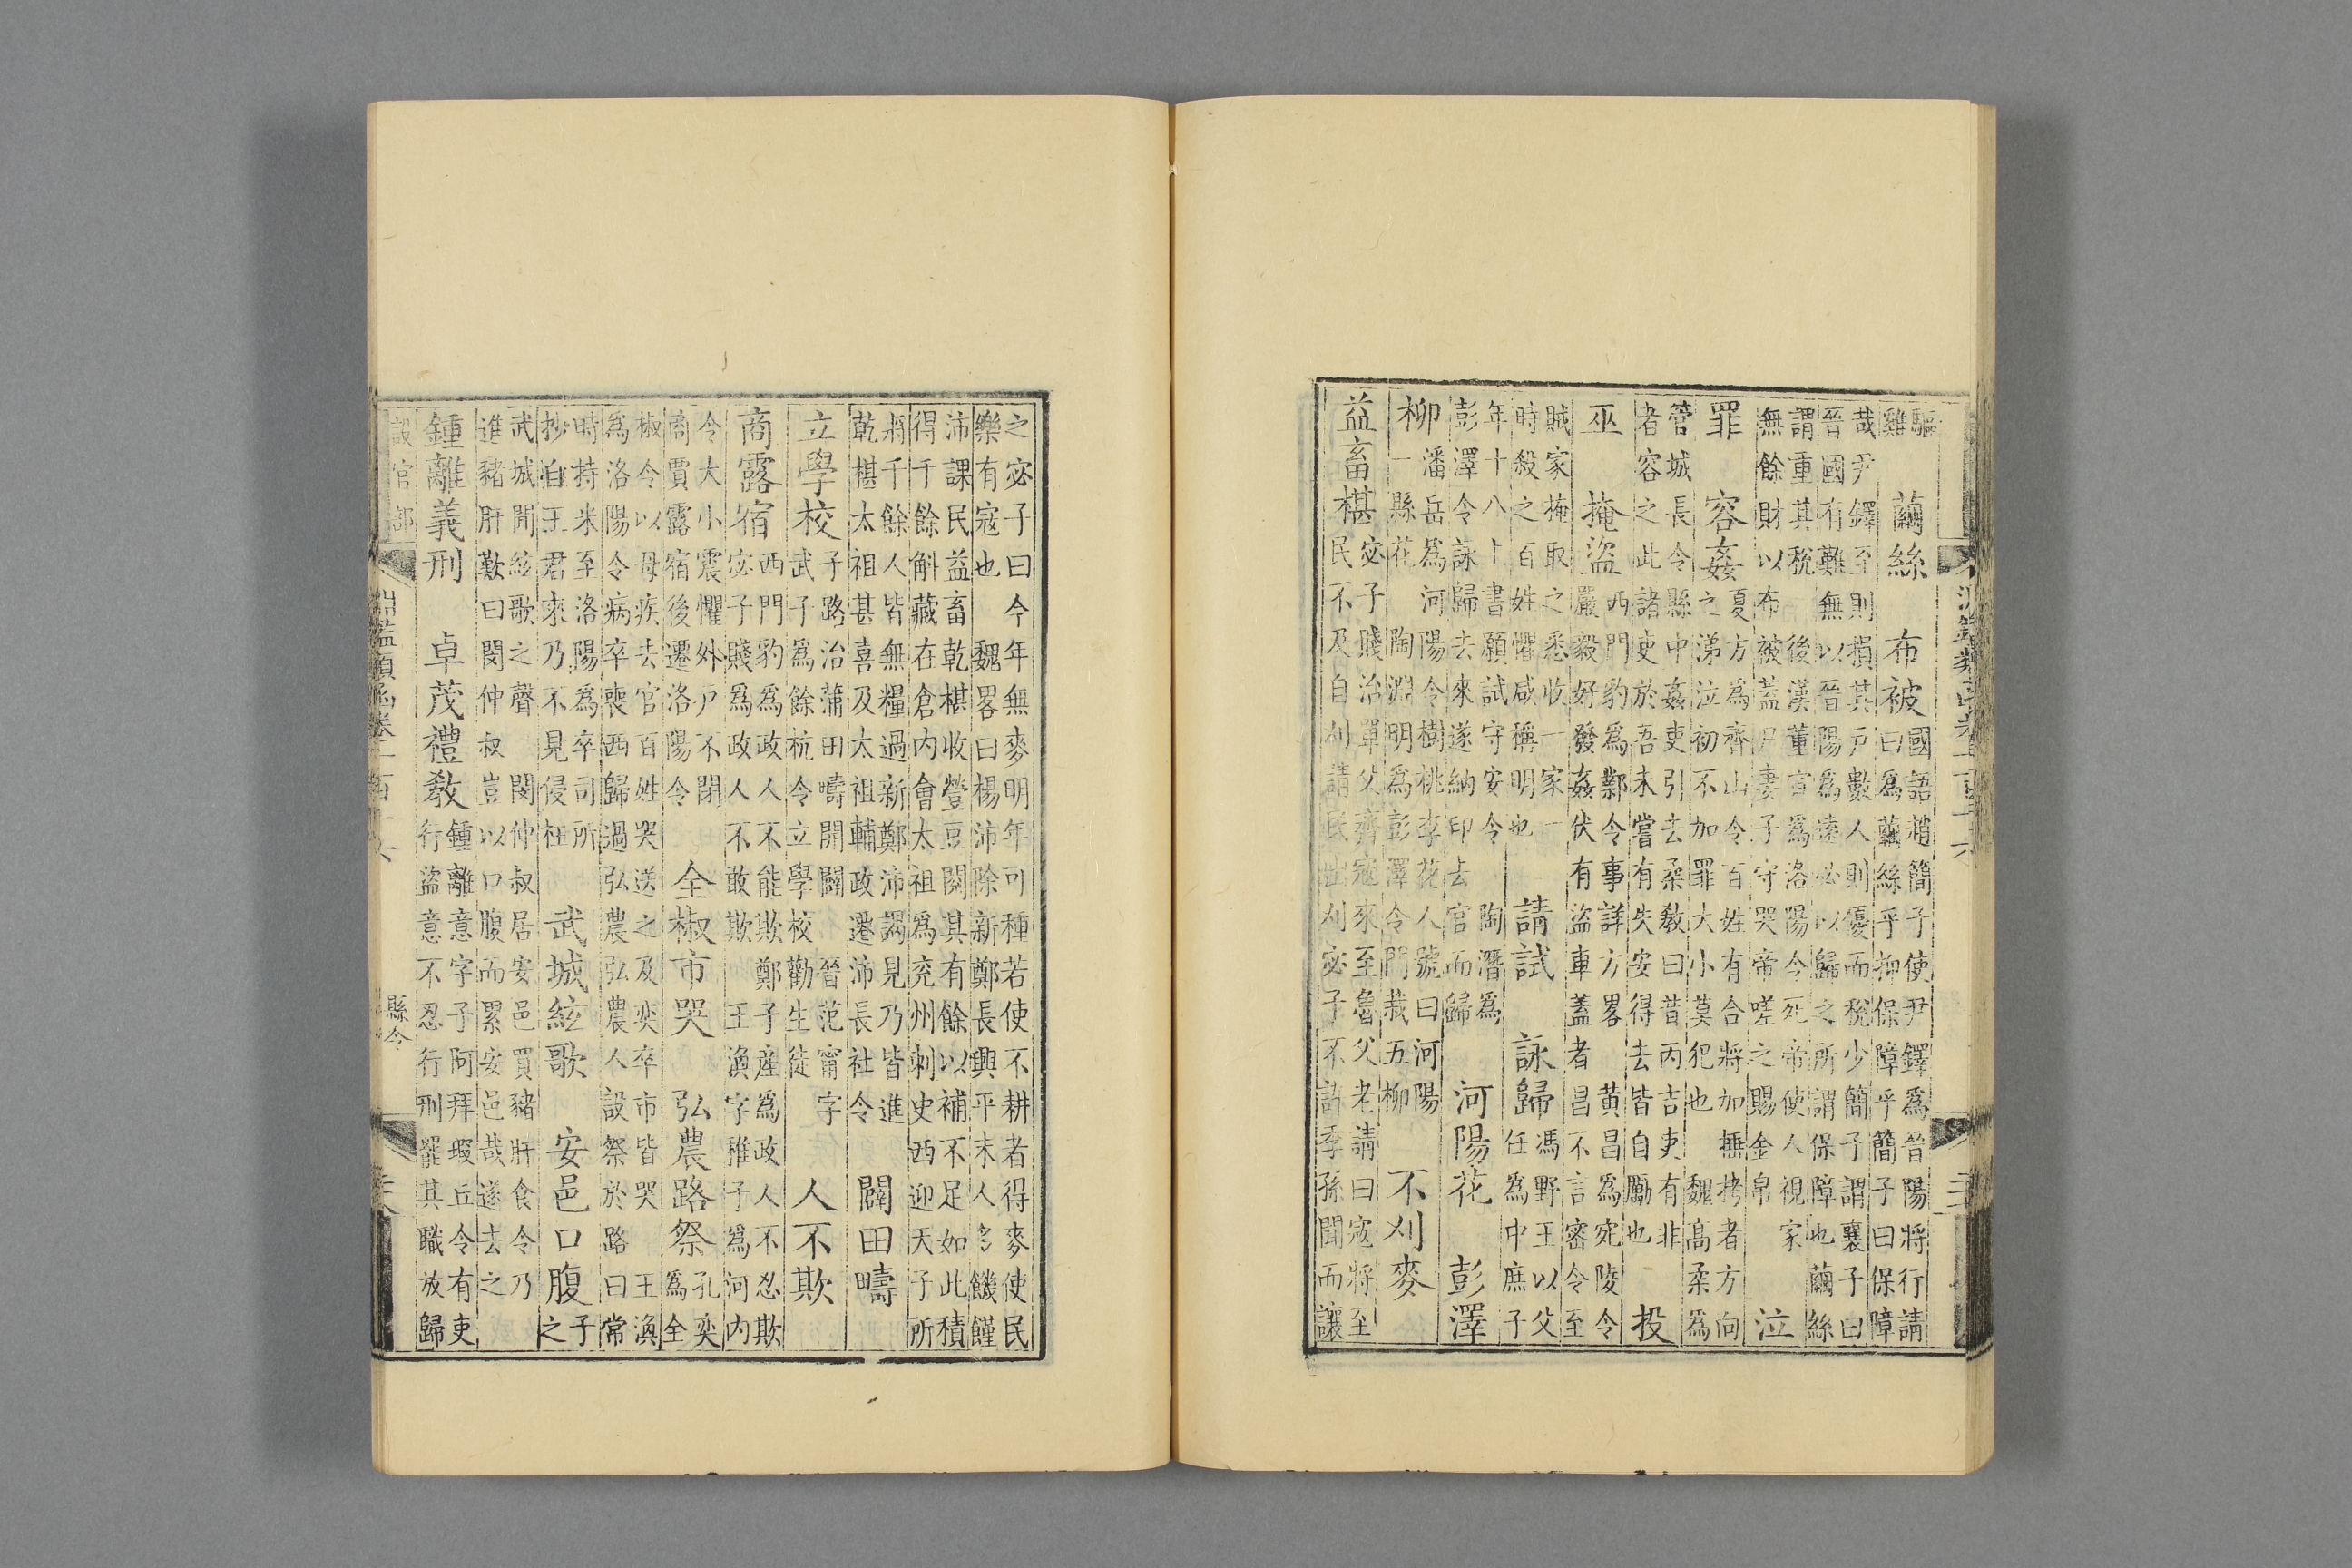 驅雞　繭絲　布被　國語趙簡子使尹鐸爲晉陽將行請
曰爲繭絲乎抑保障乎簡子曰保障
哉尹鐸至則損其戶數人則優而稅少簡子謂襄子曰
晉國有難無以晉陽爲遠必以歸之所謂保障也繭絲
謂重其稅　後漢董宣爲洛陽令死帝使人視家
無餘財以布被蓋尸妻子守哭帝嗟之賜金帛　泣
罪　容姦　夏方爲齊山令百姓有合將加撫拷者方向
之涕泣初不加罪大小莫犯也　魏髙柔爲
管城長令縣中姦吏引去柔敎曰昔丙吉吏有非
者容之此諸吏於吾未嘗有失安得去皆自勵也　投
巫　掩盜　西門豹爲鄴令事詳方畧　黄昌爲宛陵令
嚴毅好發姦伏有盜車蓋者昌不言密令至
賊家掩取之悉收一家一
時殺之百姓懼咸稱明也　請試　詠歸　馮野王以父
任爲中庶子
年十八上書願試守安令　陶潛爲
彭澤令詠歸去來遂納印去官而歸　河陽花　彭澤
柳　潘岳爲河陽令樹桃李花人號曰河陽
一縣花　陶淵明爲彭澤令門栽五柳　不刈麥
益畜椹　宓子賤治單父齊寇來至魯父老請曰寇將至
民不及自刈請民出刈宓子不許季孫聞而讓
之宓子曰今年無麥明年可種若使不耕者得麥使民
樂有寇也　魏畧曰楊沛除新鄭長興平末人多饑饉
沛課民益畜乾椹收䝁豆閱其有餘以補不足如此積
得千餘斛藏在倉内會太祖爲兖州刺史西迎天子所
將千餘人皆無糧過新鄭沛謁見乃皆進
乾椹太祖甚喜及太祖輔政遷沛長社令　闢田疇
立學校　子路治蒲田疇開闢　晉范甯字
武子爲餘杭令立學校勸生徒　人不欺
商露宿　西門豹爲政人不能欺鄭子產爲政人不忍欺
宓子賤爲政人不敢欺　王渙字稚子爲河内
令大小震懼外戶不閉
商賈露宿後遷洛陽令　全椒市哭　弘農路祭　孔奕
爲全
椒令以母疾去官百姓哭送之及奕卒市皆哭　王渙
爲洛陽令病卒喪西歸過弘農弘農人設祭於路曰常
時持米至洛陽爲卒司所
抄自王君來乃不見侵枉　武城絃歌　安邑口腹　子
之
武城聞絃歌之聲　閔仲叔居安邑買豬肝食令乃
進豬肝歎曰閔仲叔豈以口腹而累安邑哉遂去之
鍾離義刑　卓茂禮敎　鍾離意字子阿拜瑕丘令有吏
行盜意不忍行刑罷其職放歸
設官部　淵鑑類函卷一百十六　縣令